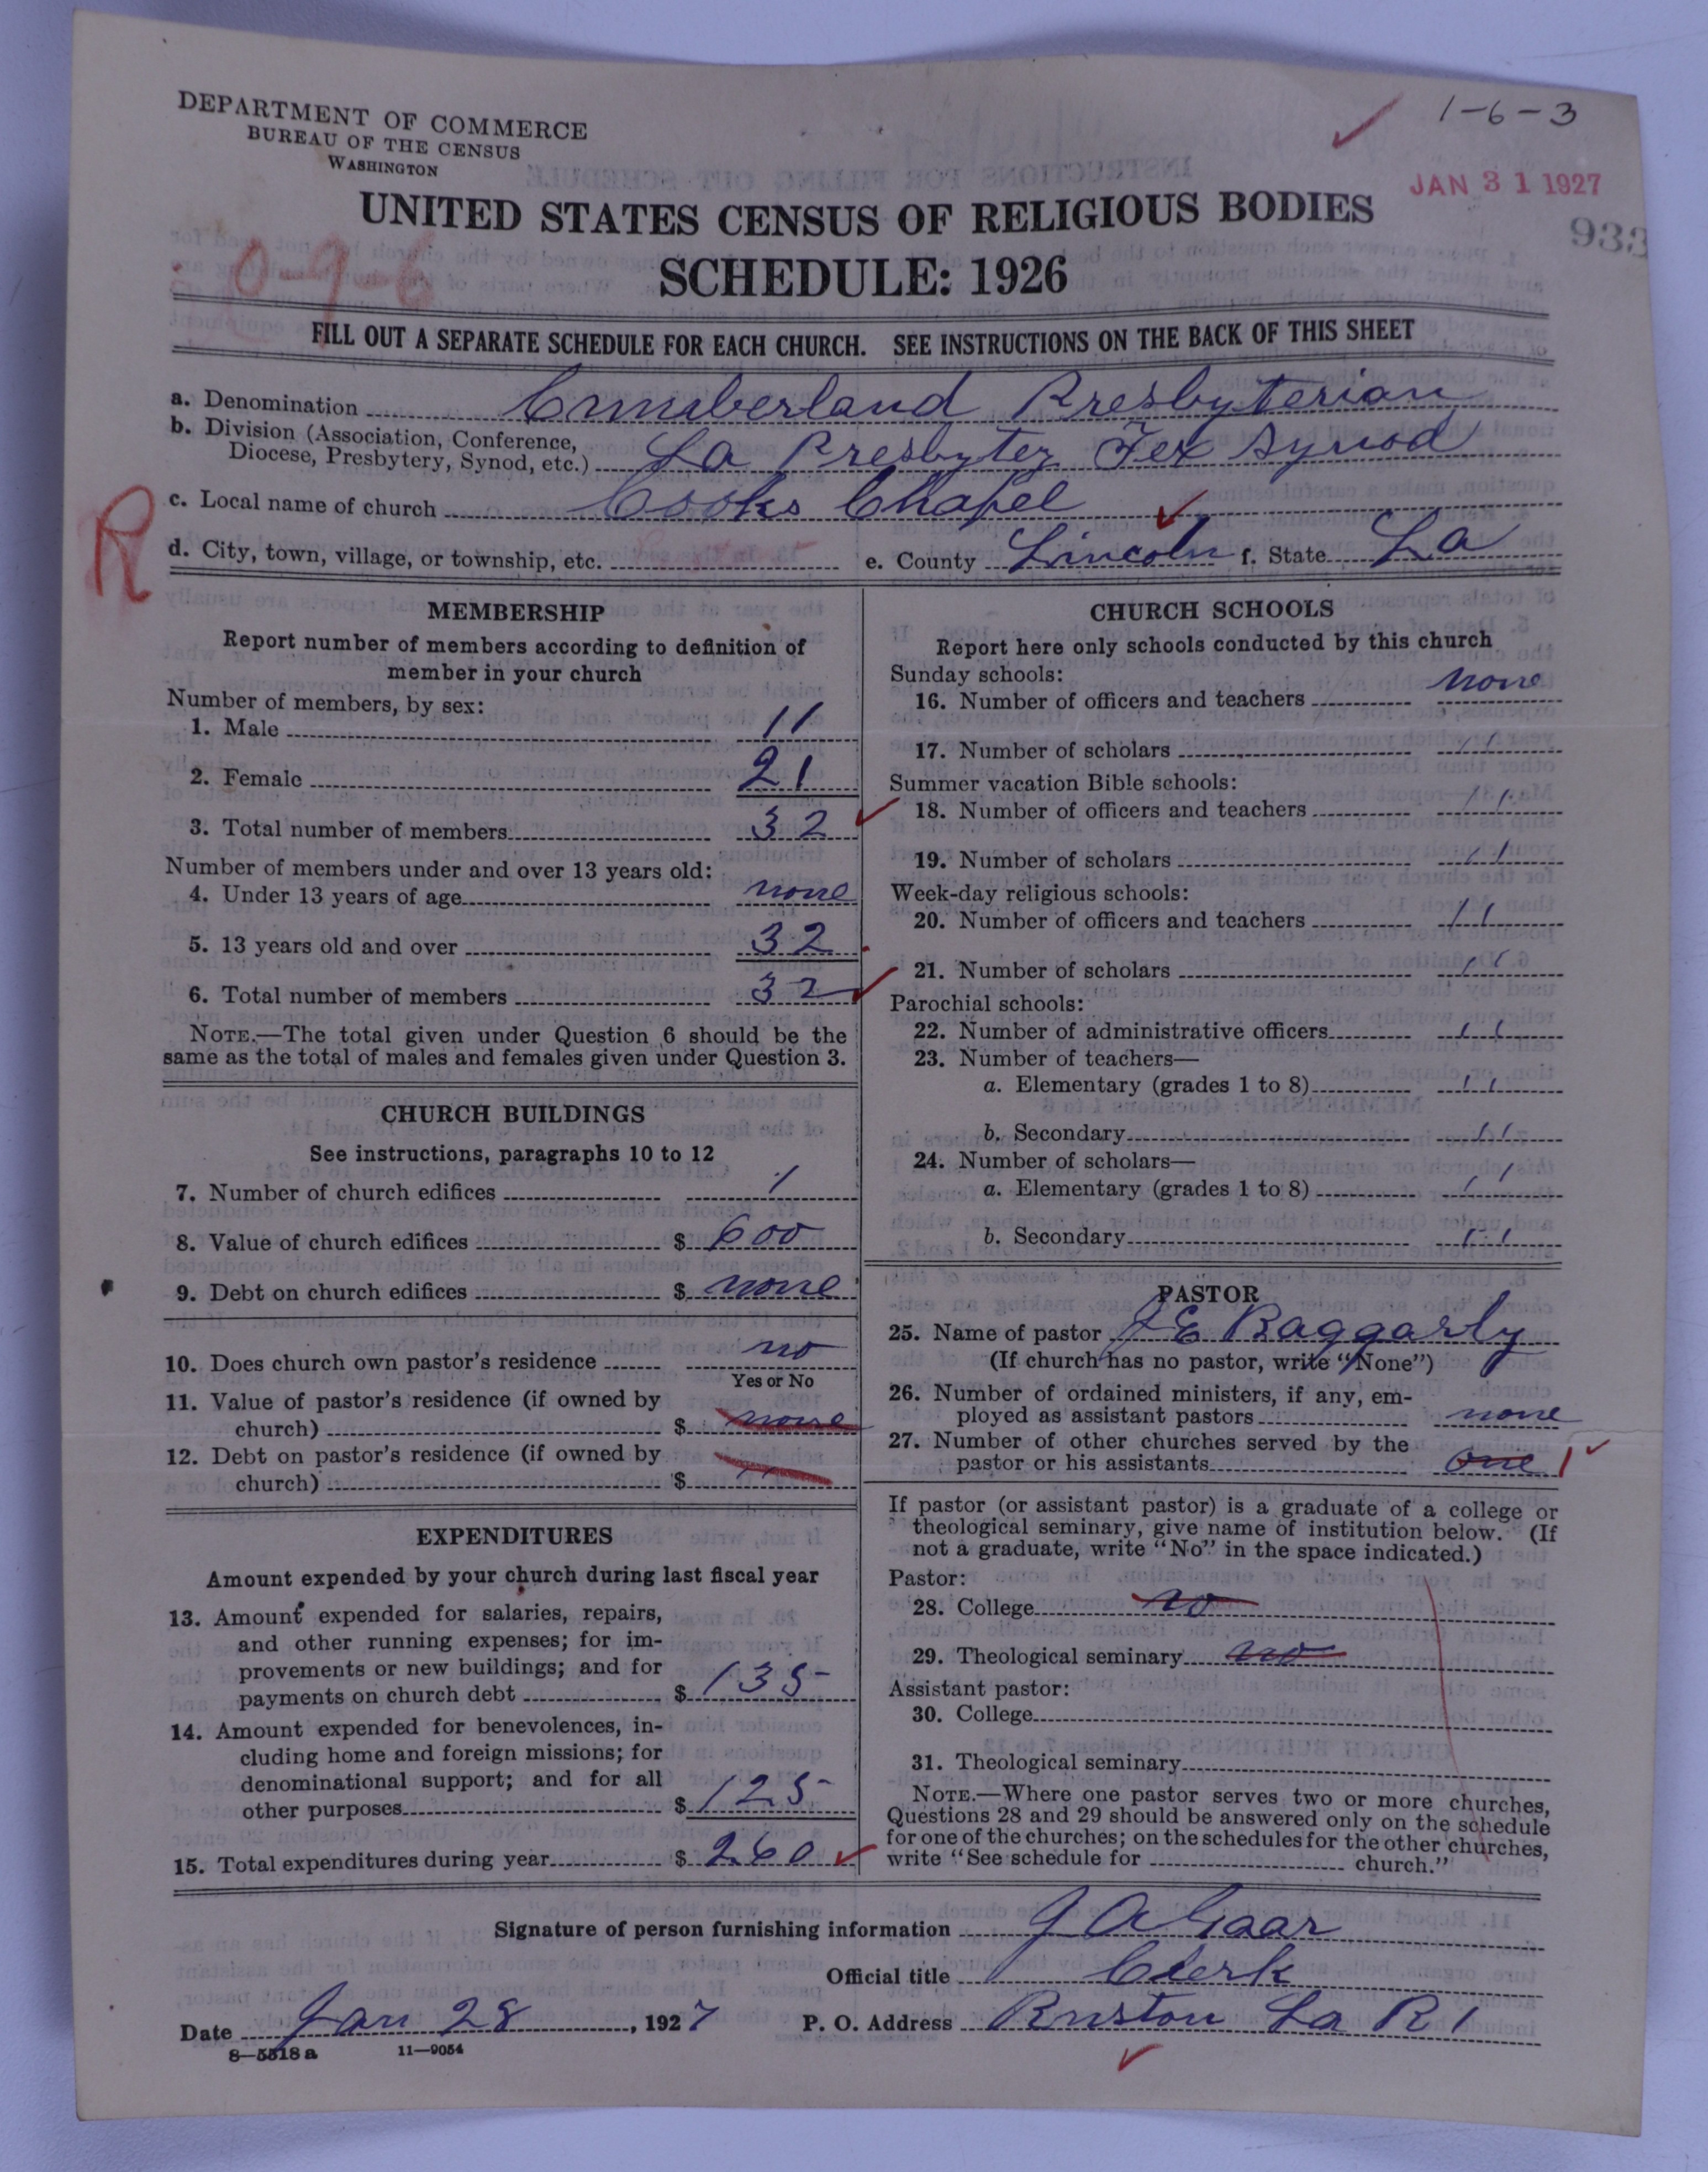 DEPARTMENT OF COMMERCE
BUREAU OF THE CENSUS
WASHINGTON
1-6-3
JAN 31 1927
933
UNITED STATES CENSUS OF RELIGIOUS BODIES
SCHEDULE: 1926
0-9-6
FILL OUT A SEPARATE SCHEDULE FOR EACH CHURCH. SEE INSTRUCTIONS ON THE BACK OF THIS SHEET
a. Denomination Cumberland Presbyterian
b. Division (Association, Conference,
Diocese, Presbytery, Synod, etc.) La Presbytery Tex Synod
c. Local name of church Cooks Chapel
R
d. City, town, village, or township, etc. e. County Lincoln f. State La
MEMBERSHIP
Report number of members according to definition of
member in your church
Number of members, by sex:
1. Male 11
2. Female 21
3. Total number of members 32
Number of members under and over 13 years old:
4. Under 13 years of age none
5. 13 years old and over 32
6. Total number of members 32
NOTE.—The total given under Question 6 should be the
same as the total of males and females given under Question 3.
CHURCH BUILDINGS
See instructions, paragraphs 10 to 12
7. Number of church edifices 1
8. Value of church edifices $ 600
9. Debt on church edifices $ none
10. Does church own pastor's residence no
Yes or No
11. Value of pastor's residence (if owned by
church) $ none
12. Debt on pastor's residence (if owned by
church) $ "
EXPENDITURES
Amount expended by your church during last fiscal year
13. Amount expended for salaries, repairs,
and other running expenses; for im-
provements or new buildings; and for
payments on church debt $ 135-
14. Amount expended for benevolences, in-
cluding home and foreign missions; for
denominational support; and for all
other purposes $ 125-
15. Total expenditures during year $ 260
CHURCH SCHOOLS
Report here only schools conducted by this church
Sunday schools:
16. Number of officers and teachers none
17. Number of scholars "
Summer vacation Bible schools:
18. Number of officers and teachers "
19. Number of scholars "
Week-day religious schools:
20. Number of officers and teachers "
21. Number of scholars "
Parochial schools:
22. Number of administrative officers "
23. Number of teachers—
a. Elementary (grades 1 to 8) "
b. Secondary "
24. Number of scholars—
a. Elementary (grades 1 to 8) "
b. Secondary "
PASTOR
25. Name of pastor J E Baggarly
(If church has no pastor, write "None")
26. Number of ordained ministers, if any, em-
ployed as assistant pastors none
27. Number of other churches served by the
pastor or his assistants one 1
If pastor (or assistant pastor) is a graduate of a college or
theological seminary, give name of institution below. (If
not a graduate, write "No" in the space indicated.)
Pastor:
28. College no
29. Theological seminary no
Assistant pastor:
30. College
31. Theological seminary
NOTE.—Where one pastor serves two or more churches,
Questions 28 and 29 should be answered only on the schedule
for one of the churches; on the schedules for the other churches,
write "See schedule for church."
Signature of person furnishing information J A Gaar
Official title Clerk
Date Jan 28, 1927 P. O. Address Ruston La R 1
8—5518 a 11—9054